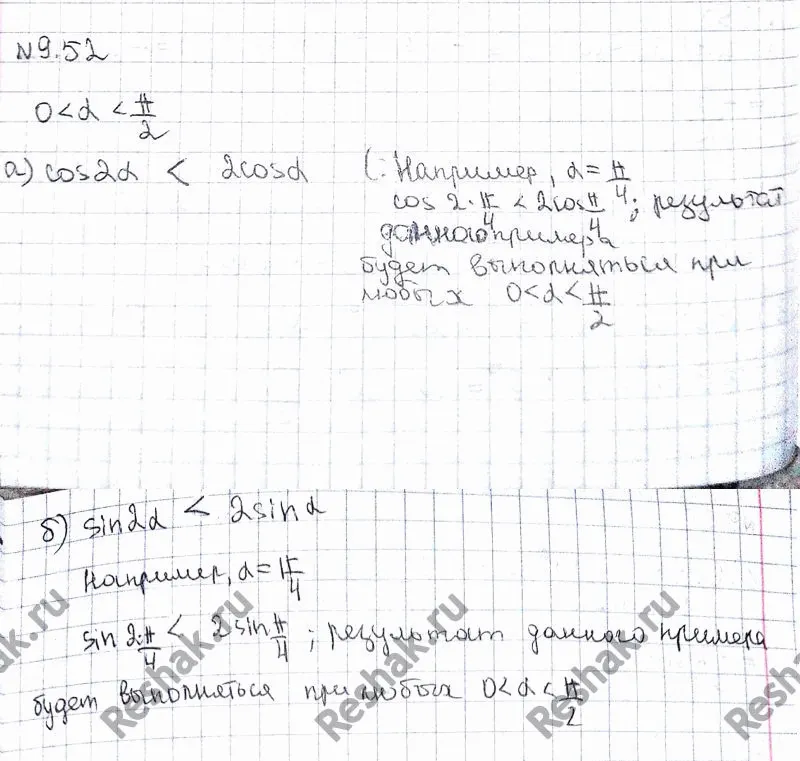 №9.52
0<α<π/2
а) cos2α < 2cosα (: Например, α=π/4
cos 2·π/4 < 2cosπ/4; результат
данного примера
будет выполняться при
любых 0<α<π/2
б) sin2α < 2sinα
Например, α=π/4
sin 2·π/4 < 2sinπ/4; результат данного примера
будет выполняться при любых 0<α<π/2
Reshak.ru
Reshak.ru
Reshak.ru
Reshak.ru
Reshak.ru